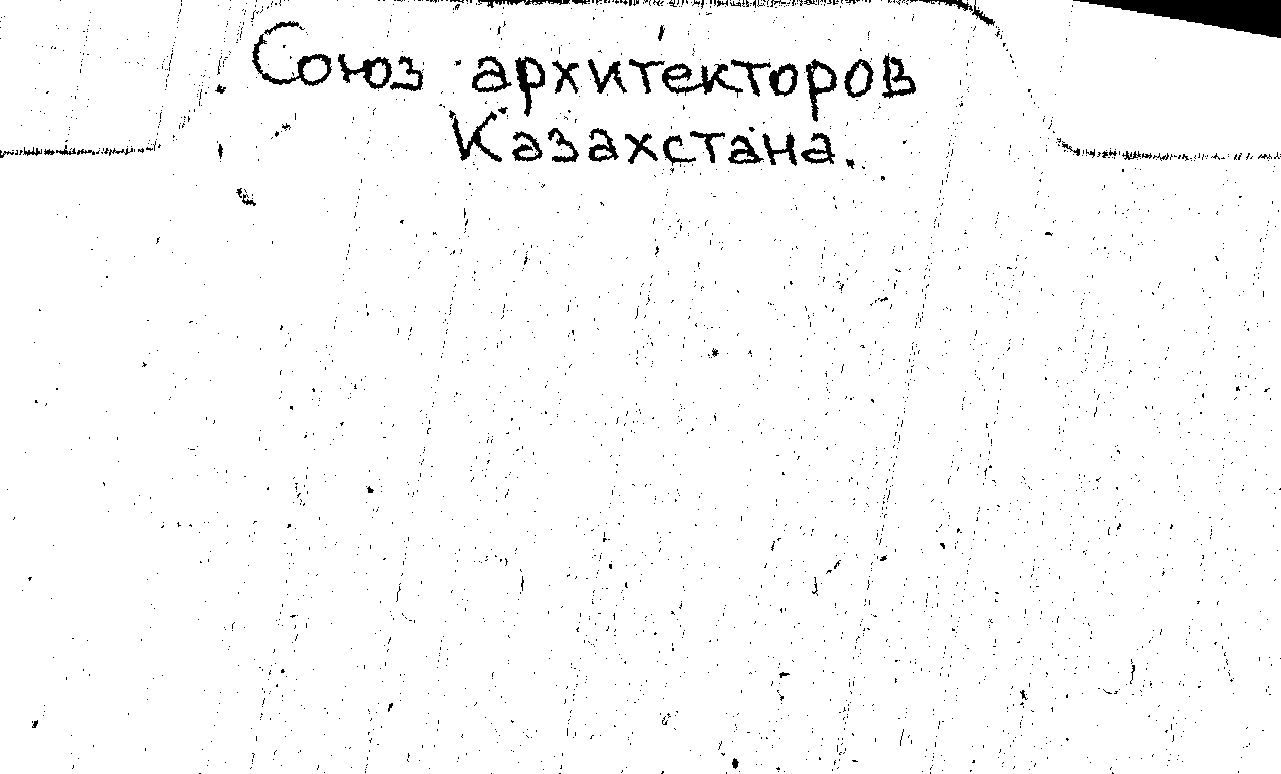 Союз архитекторов
Казахстана.